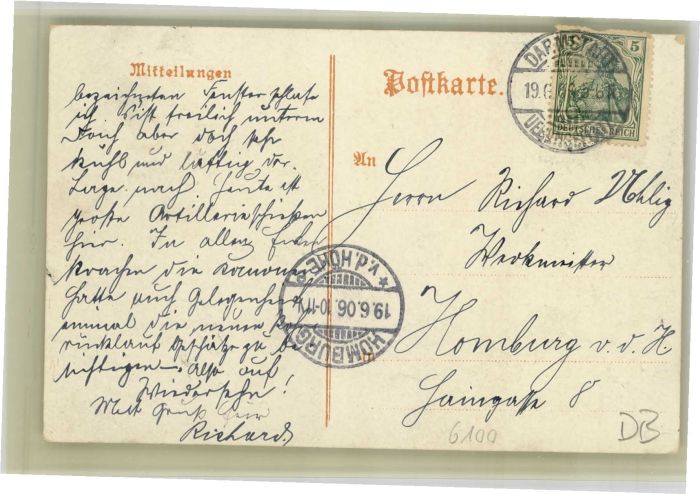 Mitteilungen
bezeichneten Fenster schlafe
ich. S'ist freilich unterm
Dach aber doch sehr
kühl und luftig der
Lage nach. Heute ist
große Artillerieschießen
hier. In allen Ecken
krachen die Kanonen
hatte auch Gelegenheit
einmal die neuen Ro
rücklauf Geschütze zu be
sichtigen – Also auf
Wiedersehn!
Mit Gruß Euer
Richard
Postkarte.
An
Herrn Richard Uhlig
Werkmeister
Homburg v. d. H
Haingasse 8
DARMSTADT
19.6.
5
DEUTSCHES REICH
HOMBURG
19.6.06. 10-11
* V.D. HÖHE
6100
DB